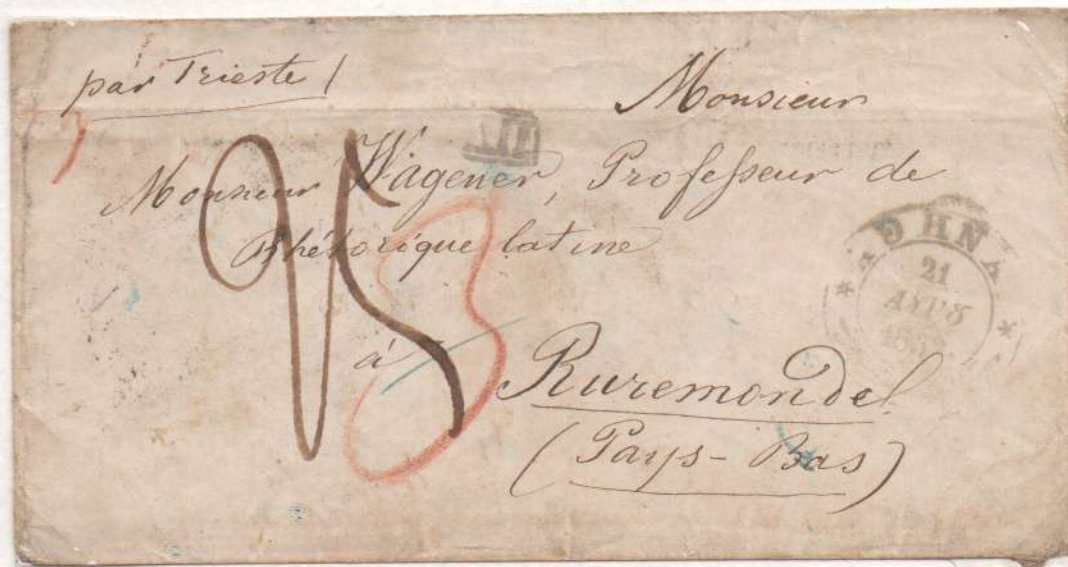 par Trieste /
Monsieur
Monsieur Wagener, Professeur de
Rhétorique latine
à
Ruremonde
(Pays-Bas)
ΑΘΗΝ
21
ΑΥΓΟΥ
3